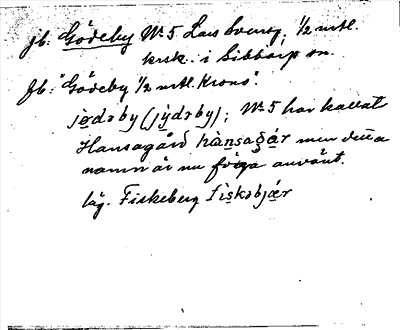 jb. Gödeby No 5 Lars Svensg. 1/2 mtl.
krsk. i Sibbarp sn.
Jb. "Gödeby 1/2 mtl. Krono".
jø̀dəby (jỳdəby); No 5 har kallat
Hansagård hànsagår men detta
namn är nu föga använt.
läg. Fiskeberg fìskəbjær